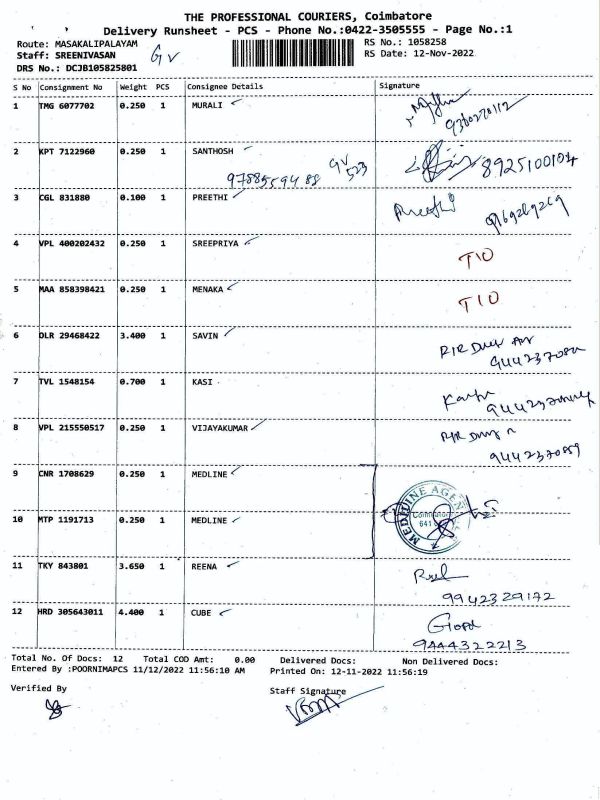 THE PROFESSIONAL COURIERS, Coimbatore
Delivery Runsheet - PCS - Phone No.:0422-3505555 - Page No.:1
Route: MASAKALIPALAYAM RS No.: 1058258
Staff: SREENIVASAN GV RS Date: 12-Nov-2022
DRS No.: DCJB105825801
S No Consignment No Weight PCS Consignee Details Signature
1 TMG 6077702 0.250 1 MURALI
9360270112
2 KPT 7122960 0.250 1 SANTHOSH
GV 523
9788559488 8925100104
3 CGL 831880 0.100 1 PREETHI Preethi
9169269269
4 VPL 400202432 0.250 1 SREEPRIYA T10
5 MAA 858398421 0.250 1 MENAKA T10
6 DLR 29468422 3.400 1 SAVIN
7 TVL 1548154 0.700 1 KASI
8 VPL 215550517 0.250 1 VIJAYAKUMAR
9442237059
9 CNR 1708629 0.250 1 MEDLINE
10 MTP 1191713 0.250 1 MEDLINE
Coimbatore
641
11 TKY 843801 3.650 1 REENA
9942329172
12 HRD 305643011 4.400 1 CUBE
9444322213
Total No. Of Docs: 12 Total COD Amt: 0.00 Delivered Docs: Non Delivered Docs:
Entered By :POORNIMAPCS 11/12/2022 11:56:10 AM Printed On: 12-11-2022 11:56:19
Verified By Staff Signature